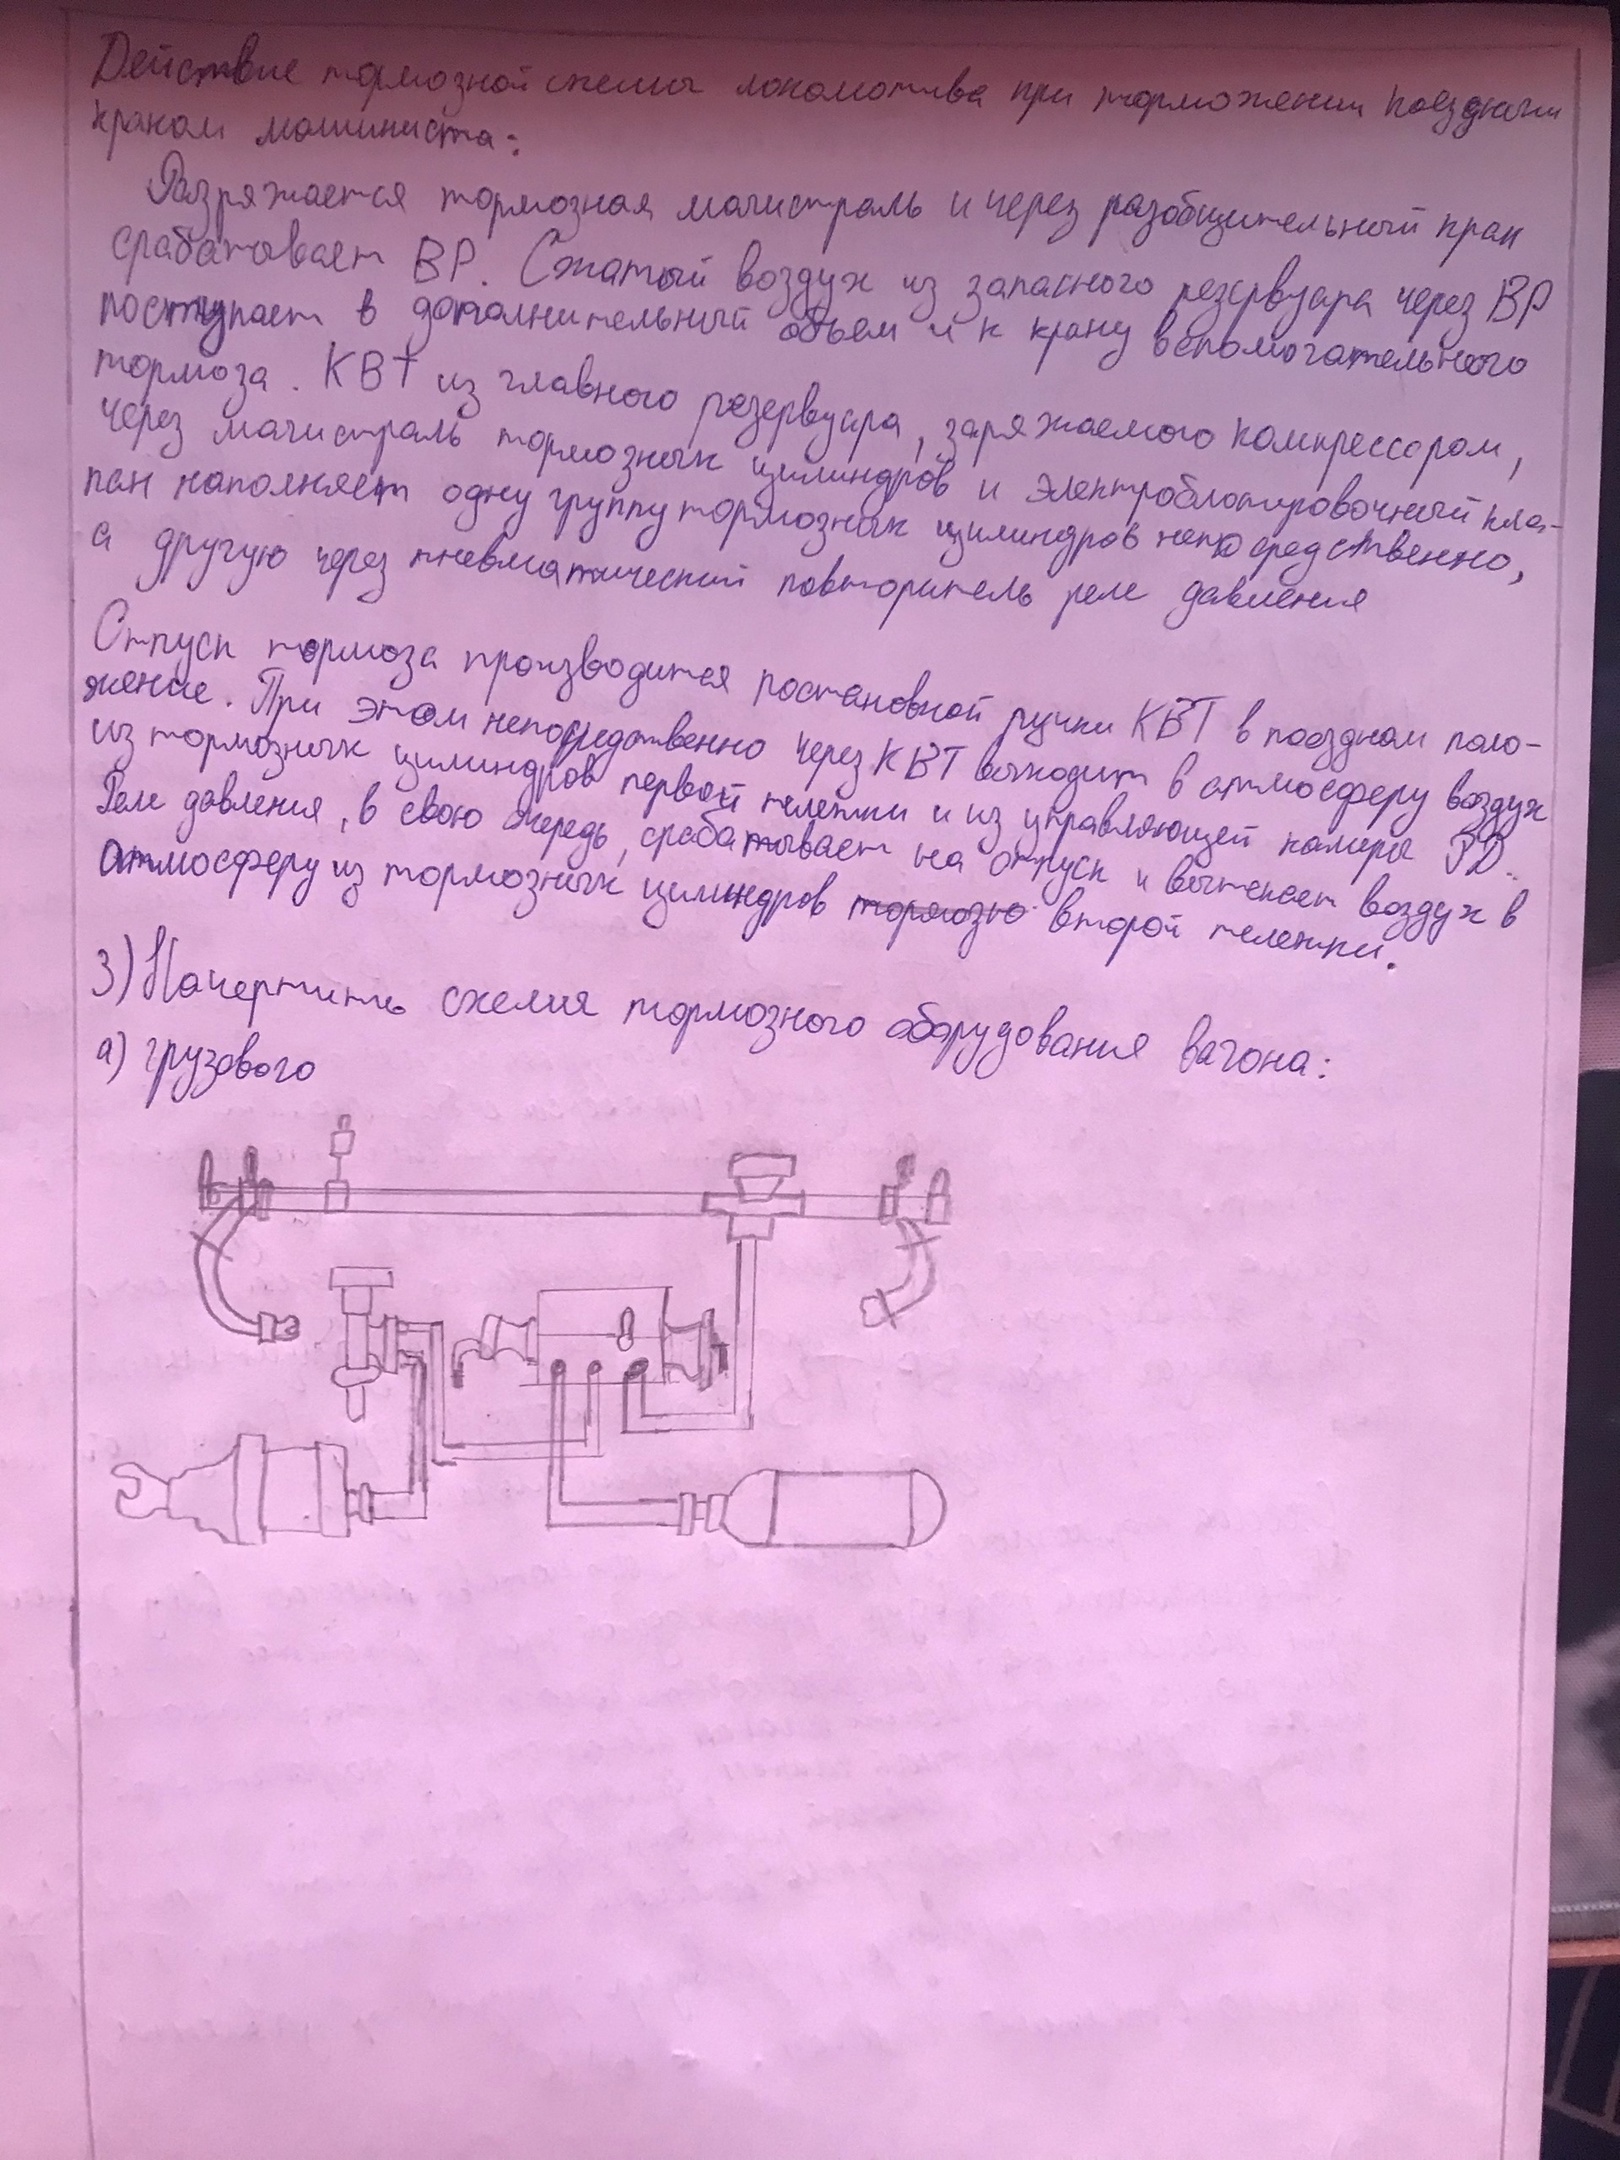 Действие тормозной схемы локомотива при торможении поездным
краном машиниста:
Разряжается тормозная магистраль и через разобщительный кран
срабатывает ВР. Сжатый воздух из запасного резервуара через ВР
поступает в дополнительный объем и к крану вспомогательного
тормоза. КВТ из главного резервуара, заряжаемого компрессором,
через магистраль тормозных цилиндров и электроблокировочный кла-
пан наполняет одну группу тормозных цилиндров непосредственно,
а другую через пневматический повторитель реле давления
Отпуск тормоза производится постановкой ручки КВТ в поездном поло-
жение. При этом непосредственно через КВТ выходит в атмосферу воздух
из тормозных цилиндров первой тележки и из управляющей камеры РД.
Реле давления, в свою очередь, срабатывает на отпуск и вытекает воздух в
атмосферу из тормозных цилиндров второй тележки.
3) Начертить схемы тормозного оборудования вагона:
а) грузового